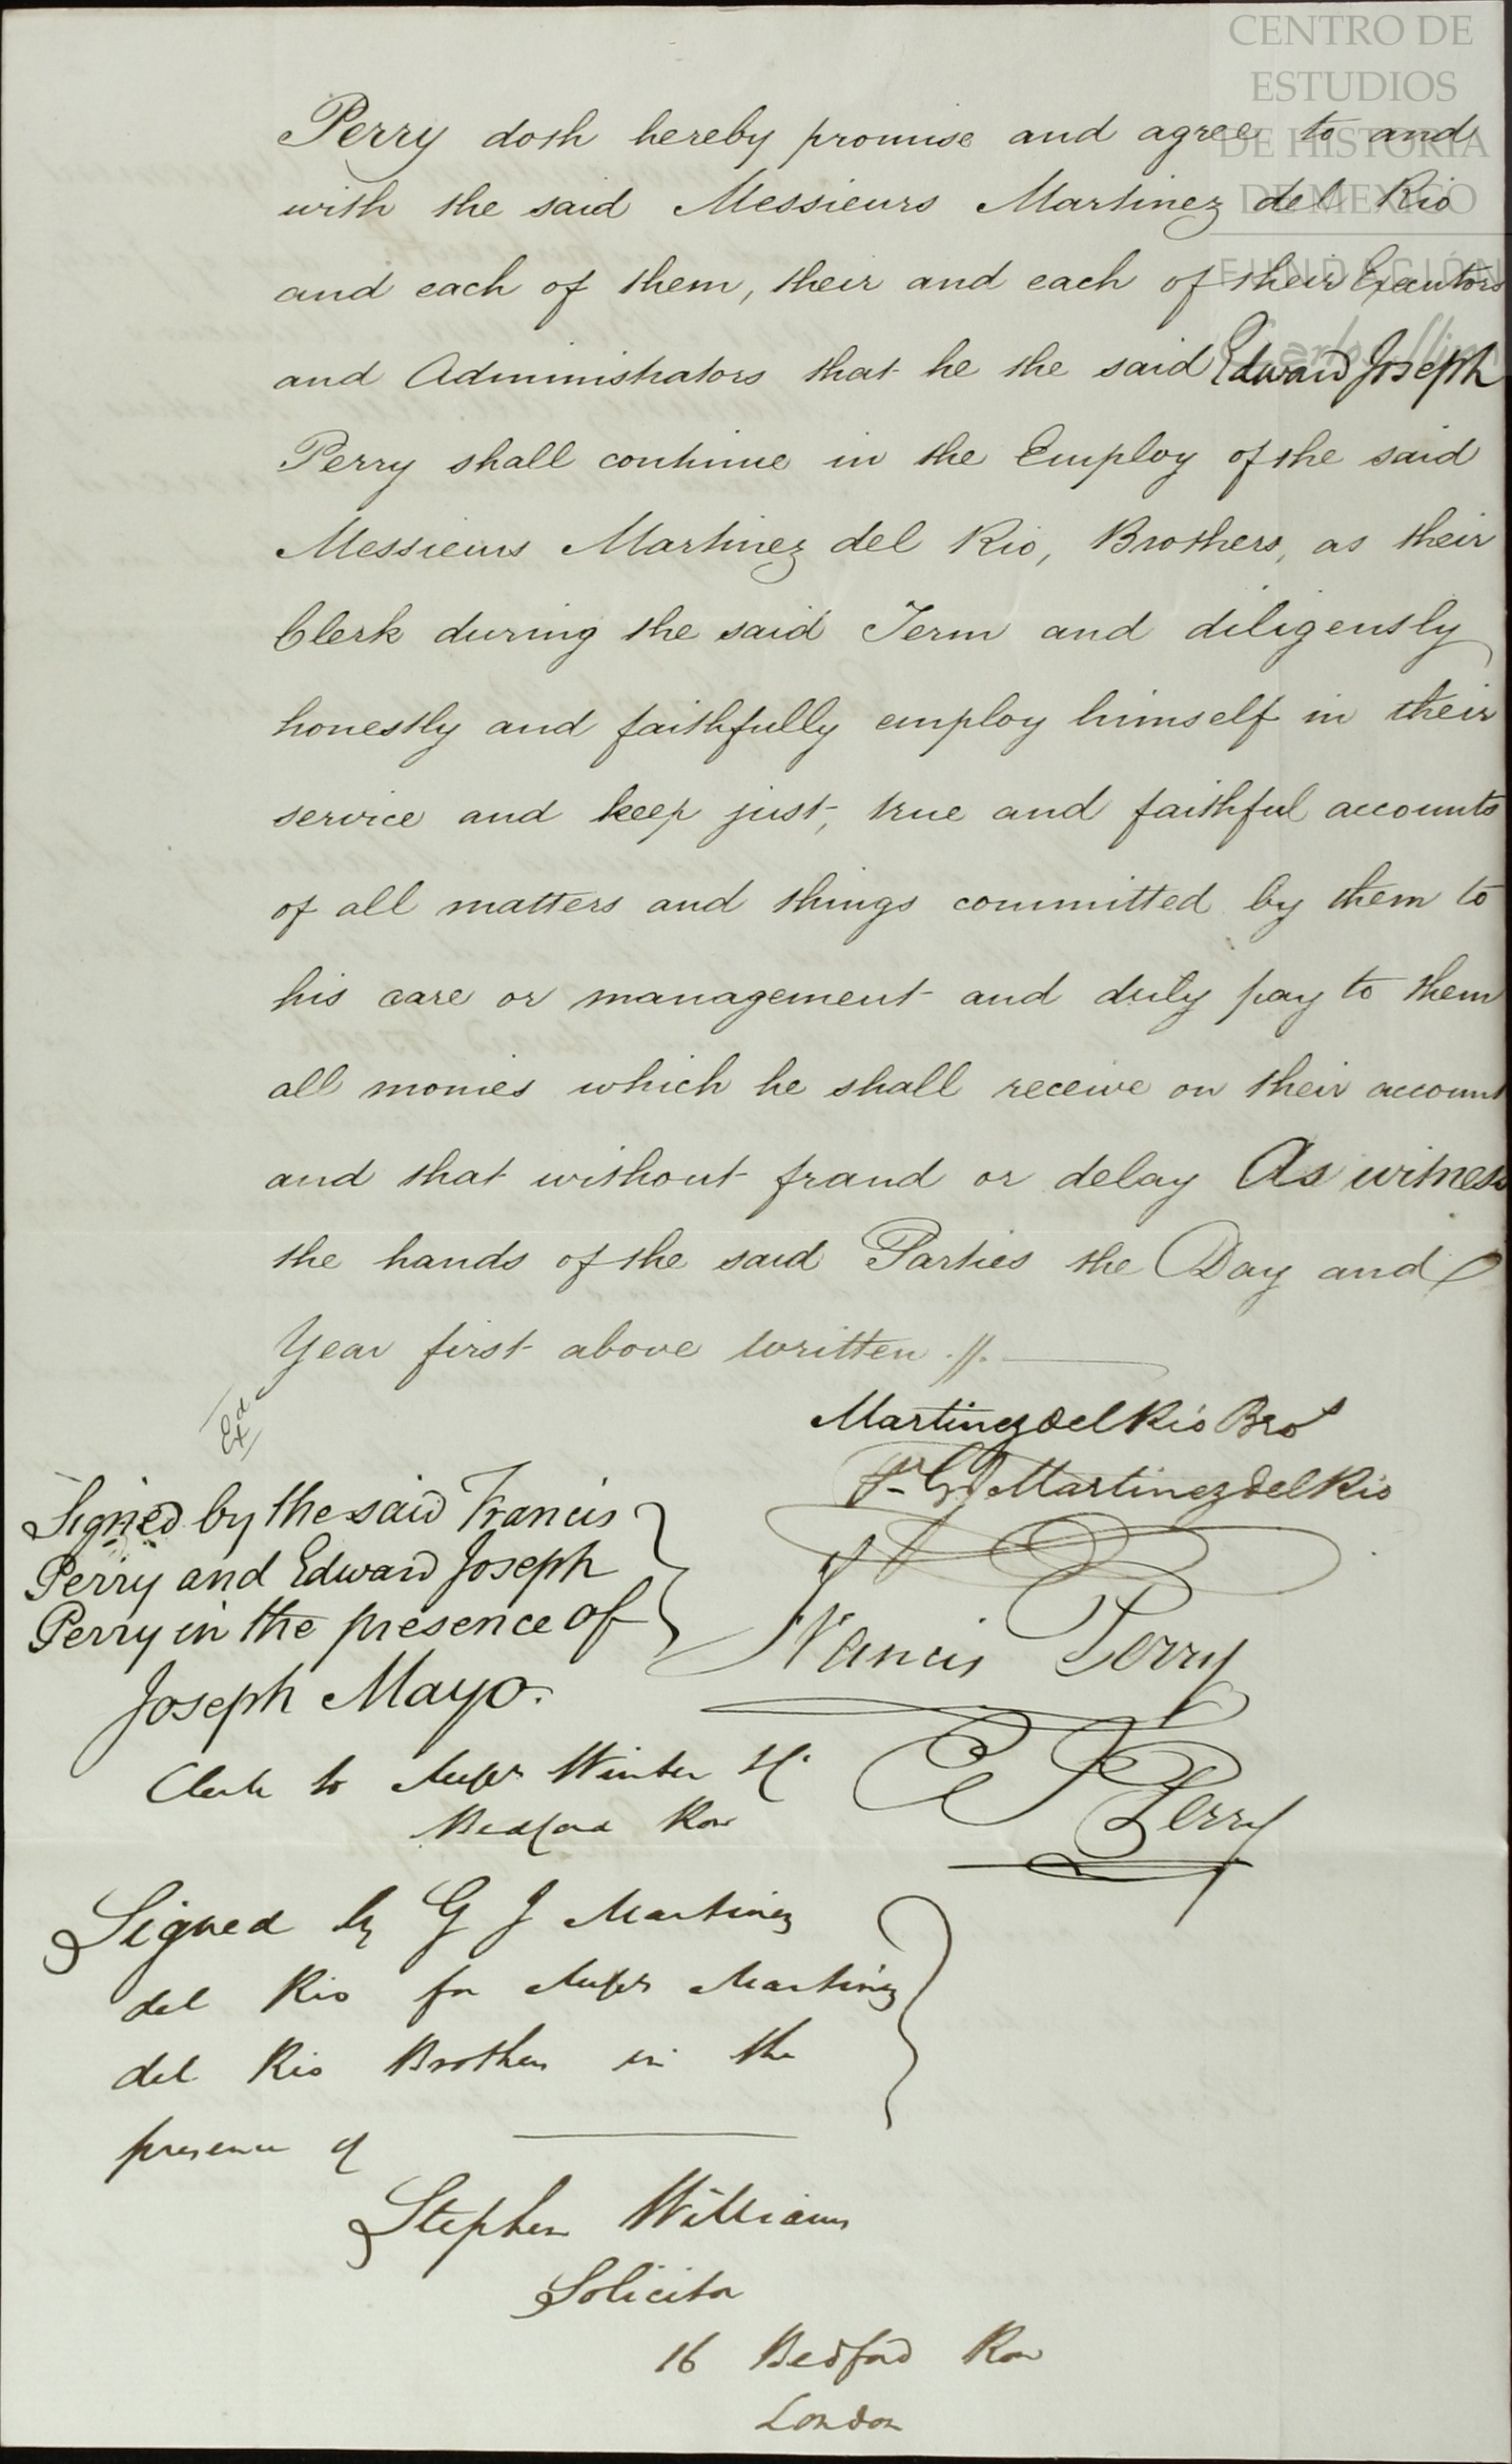 CENTRO DE
ESTUDIOS
DE HISTORIA
DE MEXICO
FUNDACIÓN
Carlos Slim
Perry doth hereby promise and agree to and
with the said Messieurs Martinez del Rio
and each of them, their and each of their Executors
and Administrators that he the said Edward Joseph
Perry shall continue in the Employ of the said
Messieurs Martinez del Rio, Brothers, as their
Clerk during the said Term and diligently
honestly and faithfully employ himself in their
service and keep just, true and faithful accounts
of all matters and things committed by them to
his care or management and duly pay to them
all monies which he shall receive on their account
and that without fraud or delay As witness
the hands of the said Parties the Day and
Year first above written .//.
Exd
Martinez del Rio Bros
G J Martinez del Rio
Signed by the said Francis
Perry and Edward Joseph
Perry in the presence of
Francis Perry
Joseph Mayo.
Clerk to Messrs Winter
Bedford Row
E J Perry
Signed by G J Martinez
del Rio for Messrs Martinez
del Rio Brothers in the
presence of
Stephen Williams
Solicitor
16 Bedford Row
London